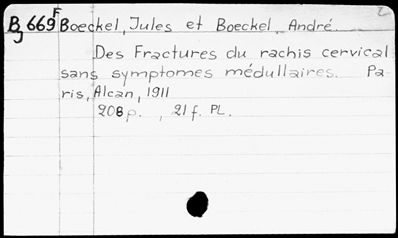 2
B 669 F Boeckel, Jules et Boeckel, André.
J
Des Fractures du rachis cervical
sans symptomes médullaires. Pa-
ris, Alcan, 1911
208p. , 21 f. PL.